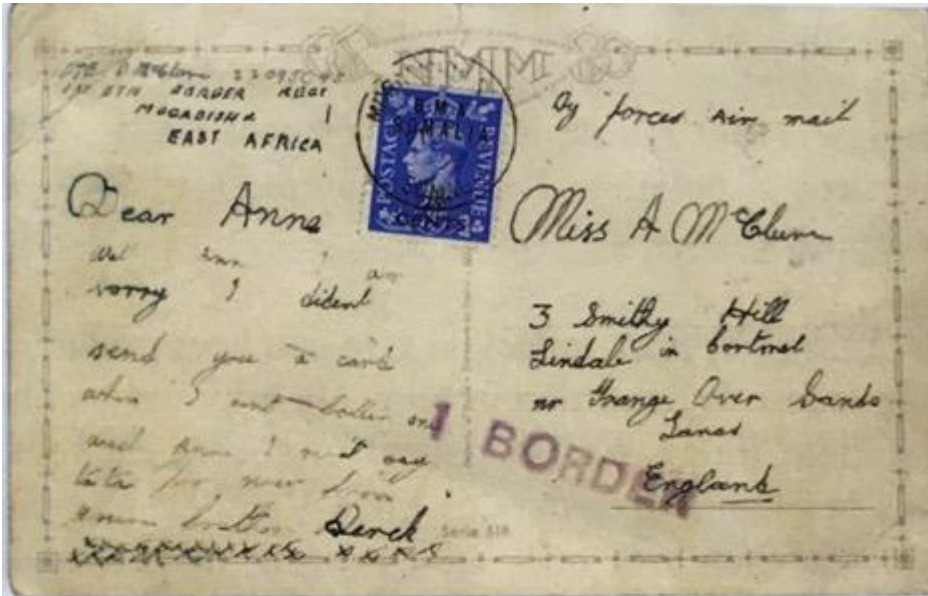 PTE D McClure 23095048
1ST BTN BORDER REGT
MOGADISHU
EAST AFRICA
POSTAGE REVENUE
B.M.A.
SOMALIA
CENTS
By forces air mail
Dear Anne
Well Ann I am
sorry I dident
send you a card
when I sent
well Anne I must say
ta ta for now from
your brother Derek
xxxxxxxxxxxx xxxxx
Miss A McClure
3 Smithy Hill
Lindale in Cartmel
nr Grange Over Sands
Lancs
England
1 BORDER
Serie 518